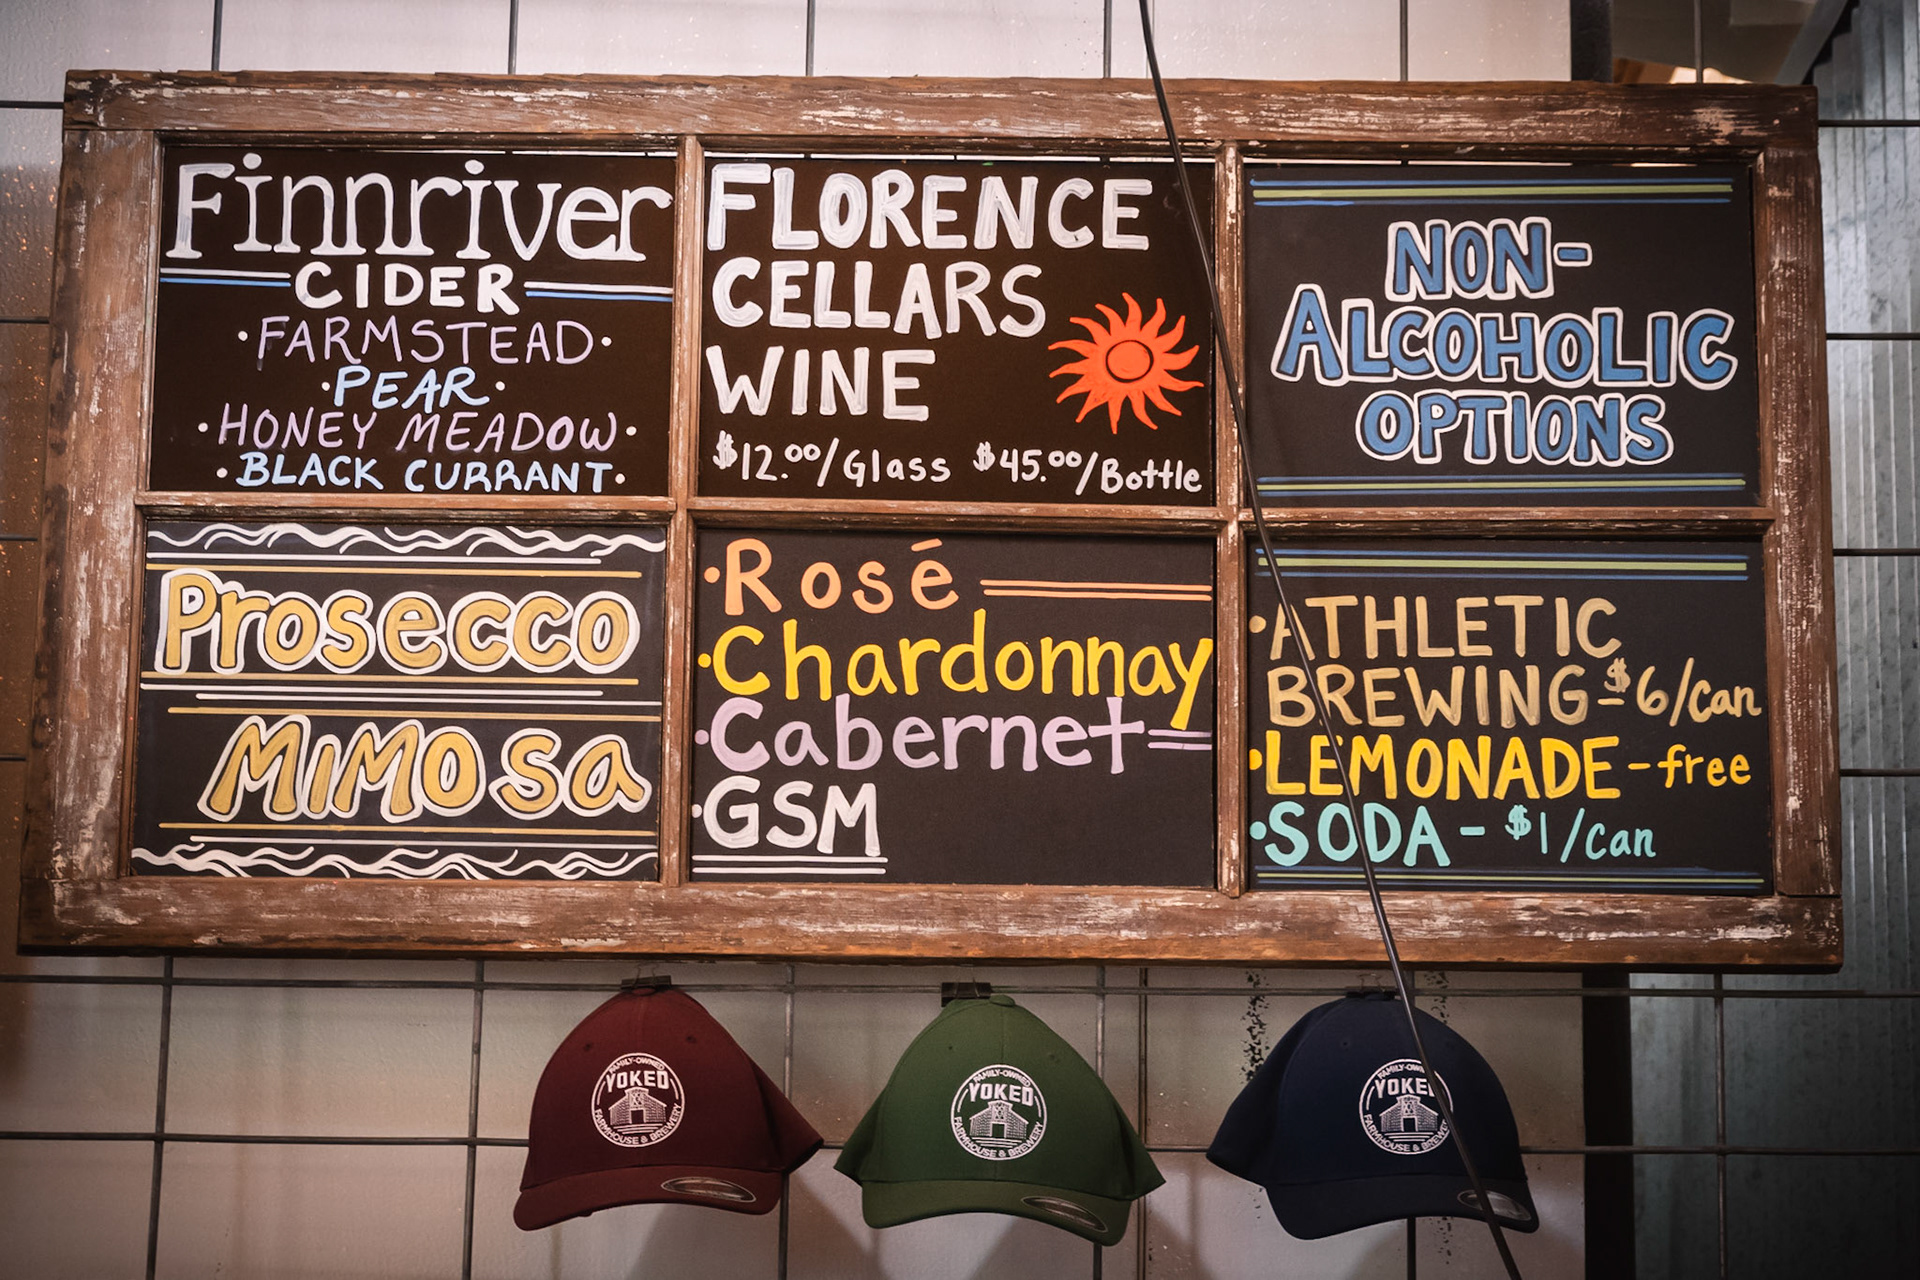 Finnriver
CIDER
• FARMSTEAD •
• PEAR •
• HONEY MEADOW •
• BLACK CURRANT •
FLORENCE
CELLARS
WINE
$12.00/Glass $45.00/Bottle
NON-
ALCOHOLIC
OPTIONS
Prosecco
MiMOsa
• Rosé
• Chardonnay
• Cabernet
• GSM
• ATHLETIC
BREWING - $6/can
• LEMONADE - free
• SODA - $1/can
FAMILY-OWNED
YOKED
FARMHOUSE & BREWERY
FAMILY-OWNED
YOKED
FARMHOUSE & BREWERY
FAMILY-OWNED
YOKED
FARMHOUSE & BREWERY